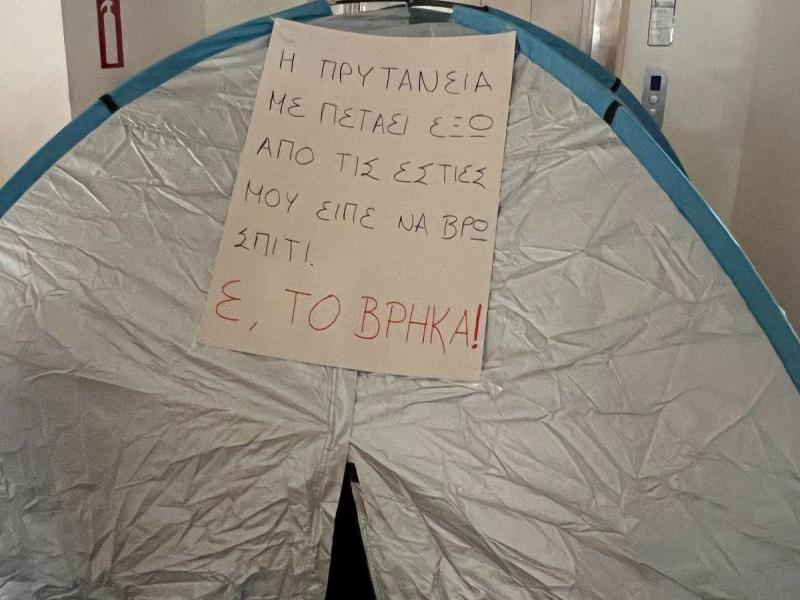 Η ΠΡΥΤΑΝΕΙΑ
ΜΕ ΠΕΤΑΕΙ ΕΞΩ
ΑΠΟ ΤΙΣ ΕΣΤΙΕΣ
ΜΟΥ ΕΙΠΕ ΝΑ ΒΡΩ
ΣΠΙΤΙ.
Ε, ΤΟ ΒΡΗΚΑ!